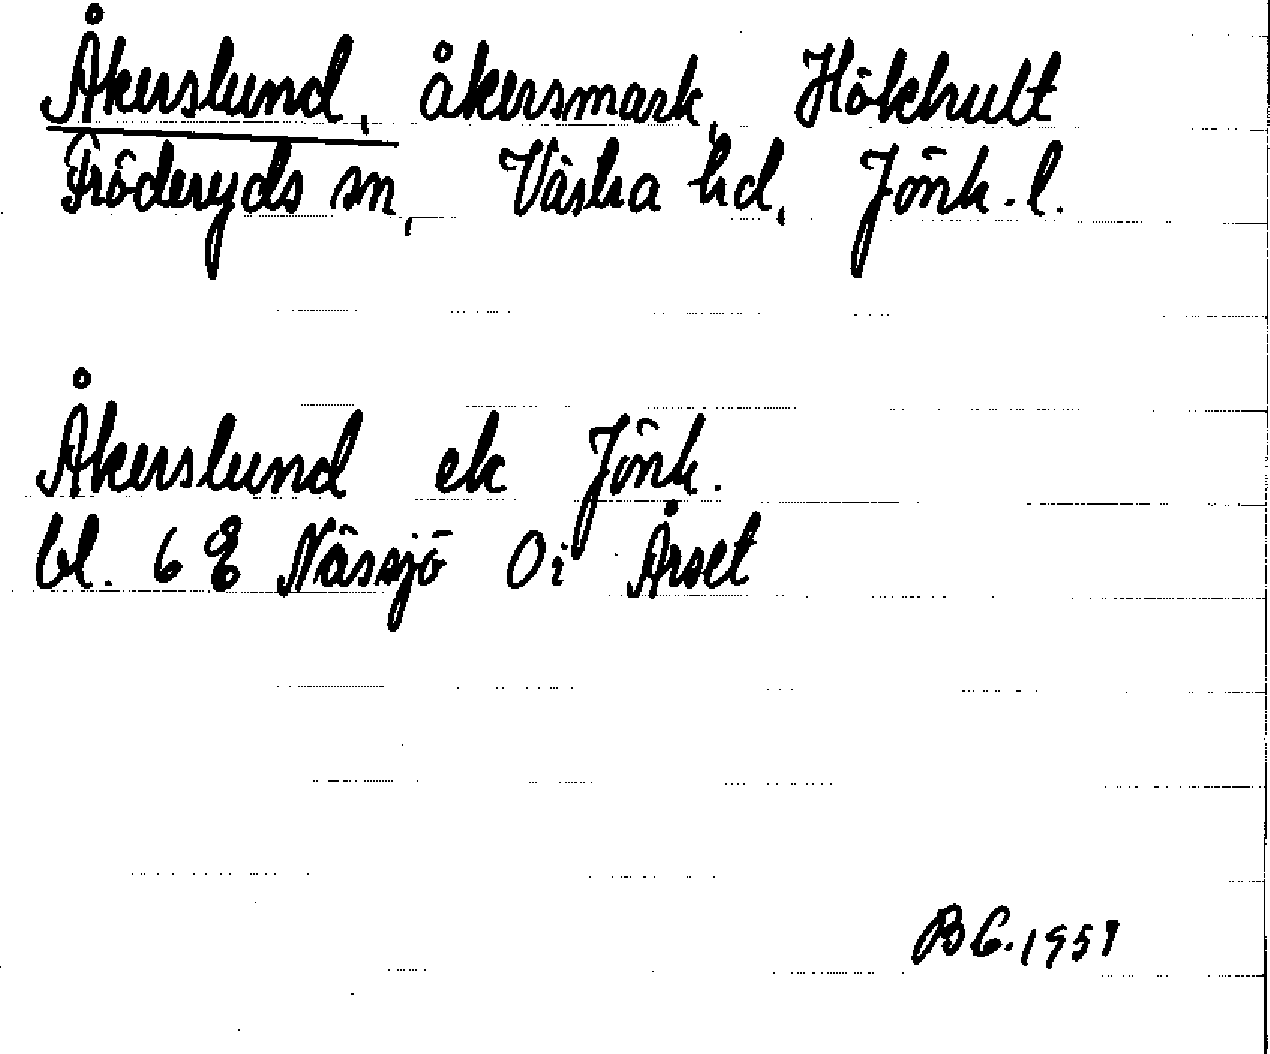 Åkerslund, åkersmark, Hökhult
Fröderyds sn, Västra hd, Jönk. l.
Åkerslund ek Jönk.
bl. 6 E Nässjö 0i Årset
B G. 1951